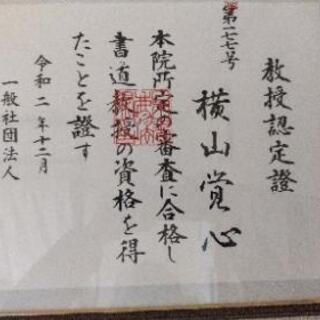 教授認定證
第一七七号
横山覚心
本院所定の審査に合格し
書道教授の資格を得
たことを證す
令和二年十二月
一般社団法人